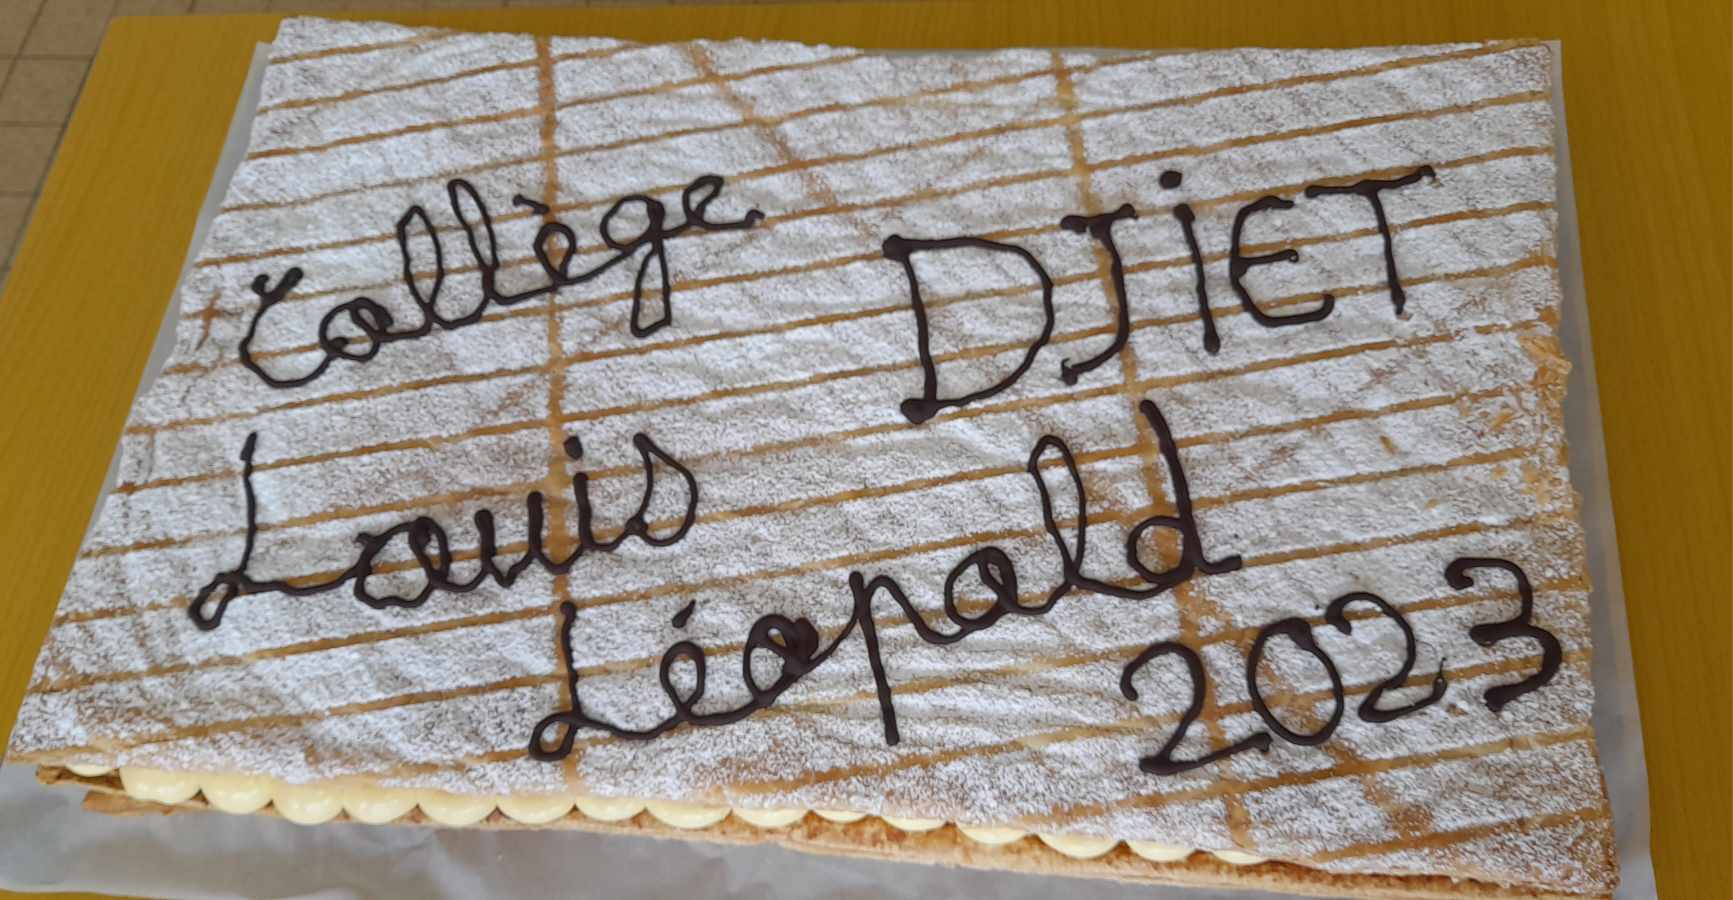 Collège DJIET
Louis
Léopold
2023